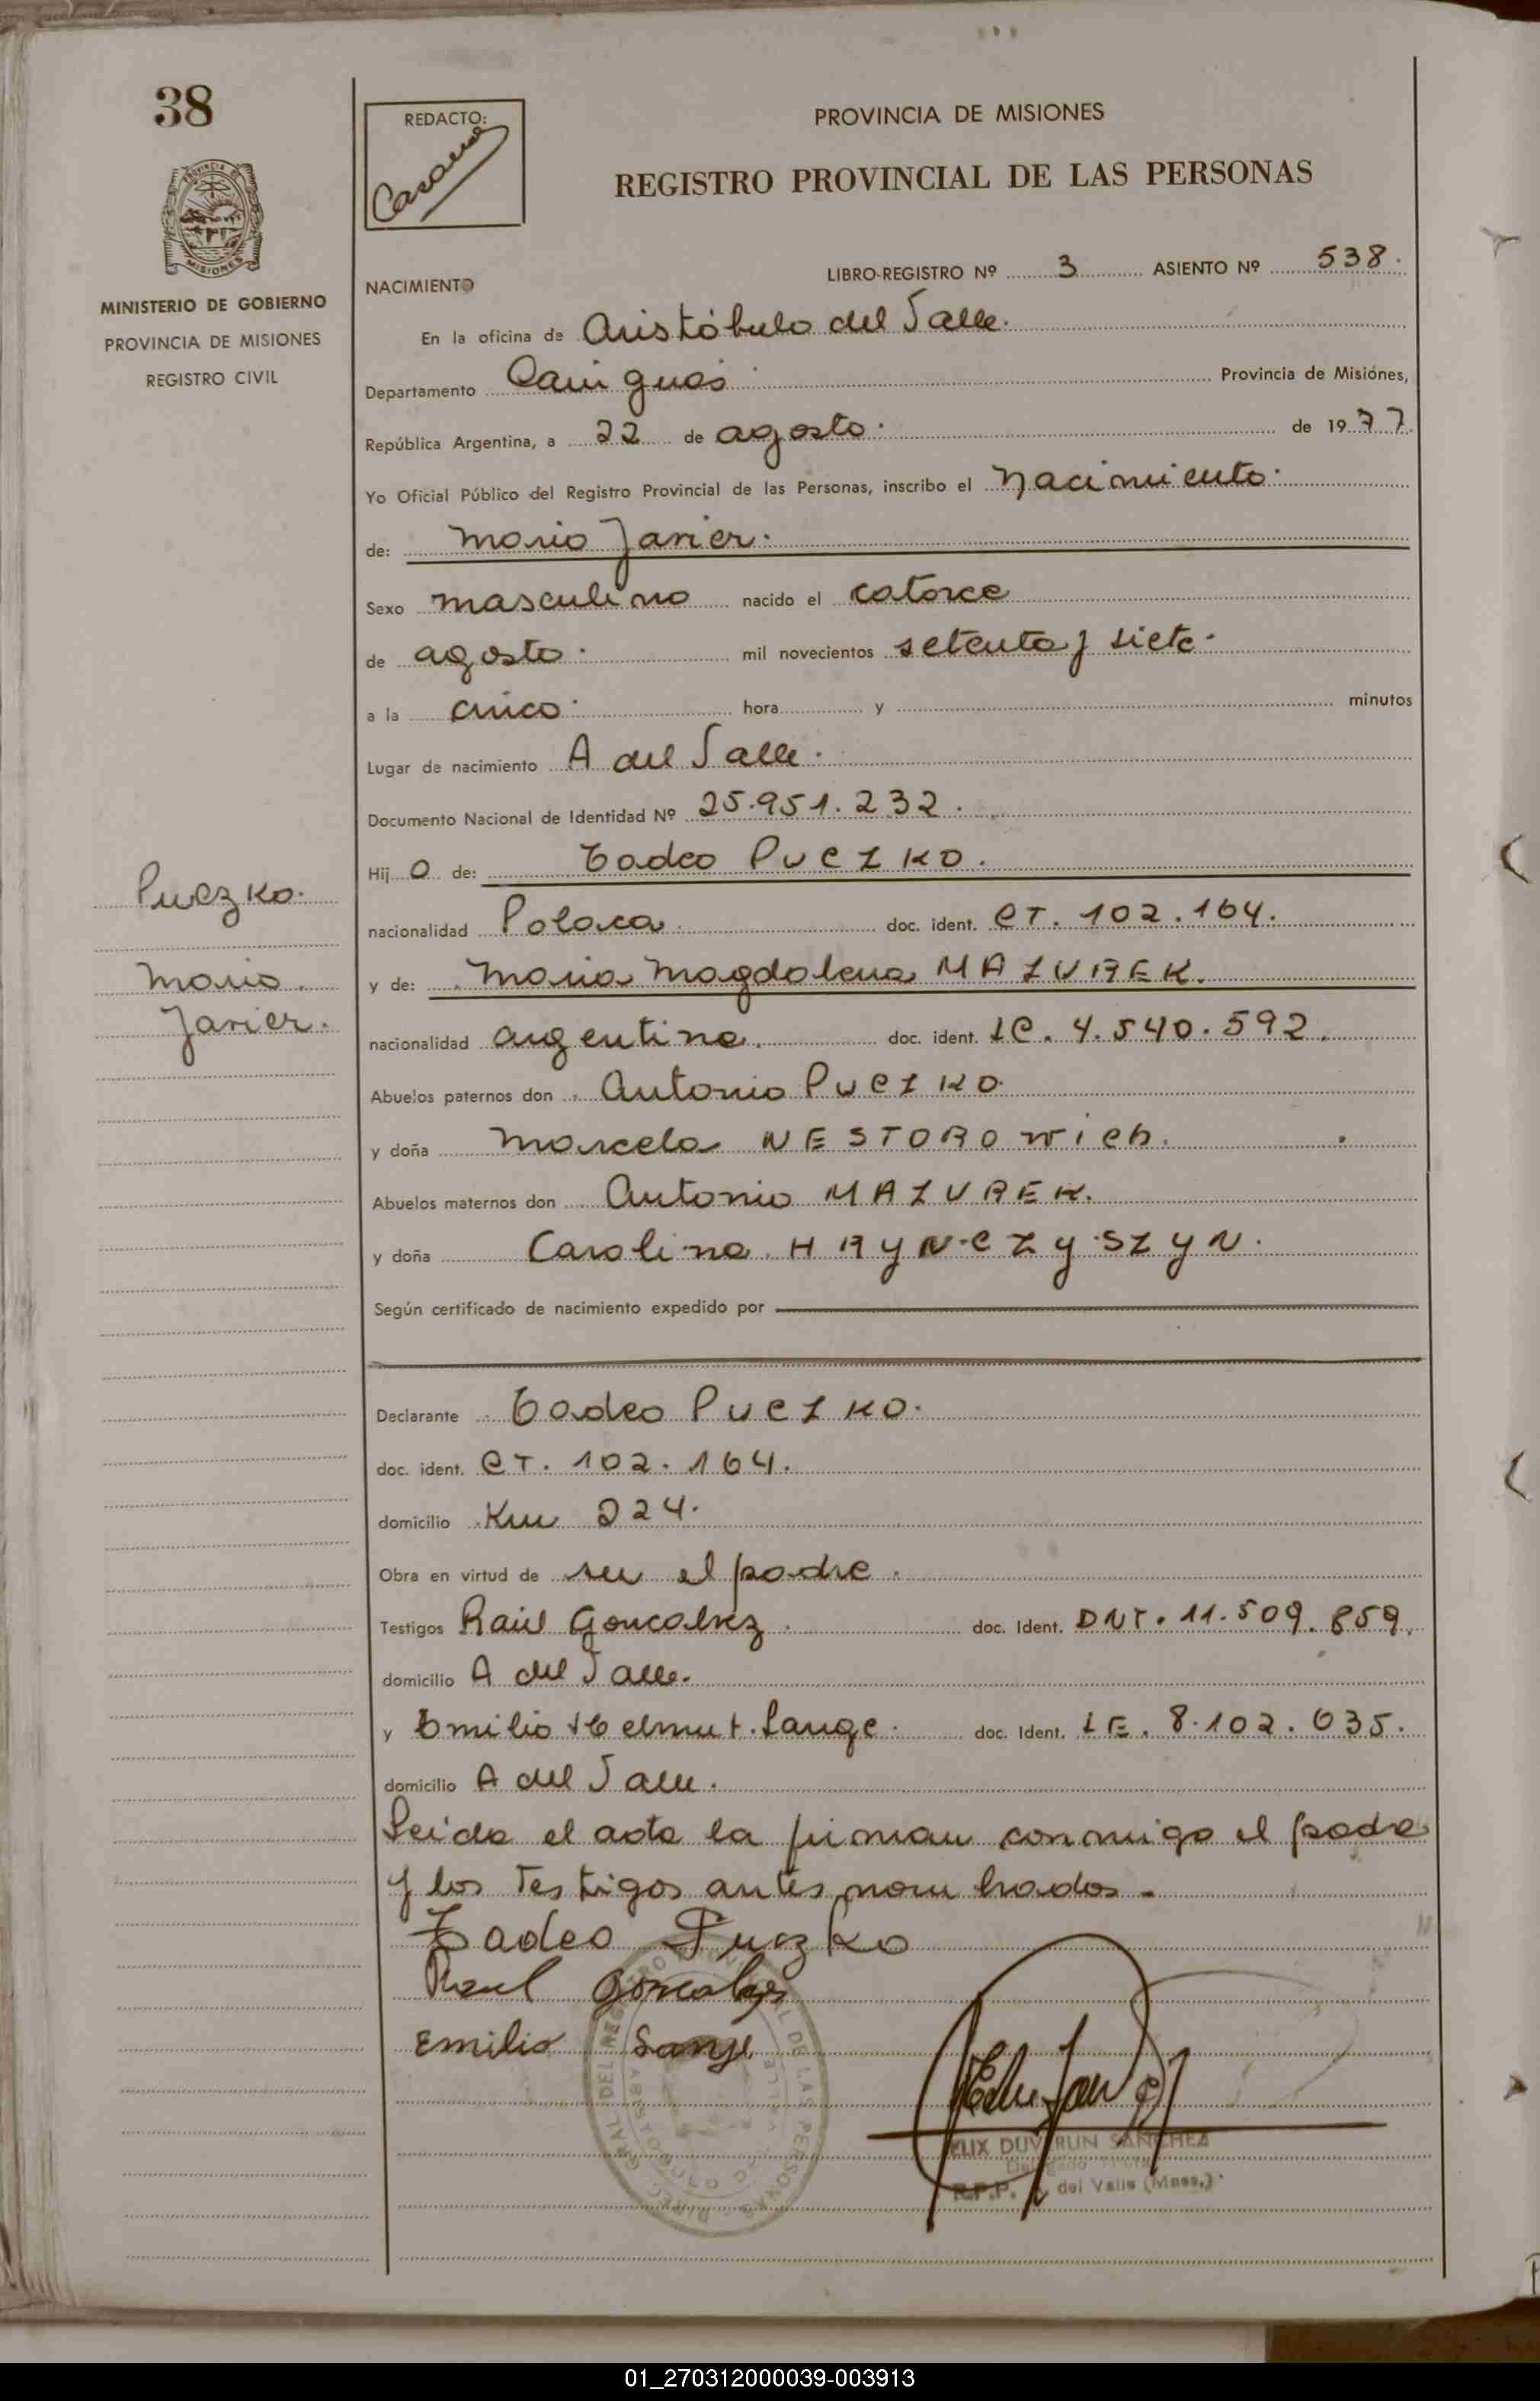 38
REDACTO:
PROVINCIA DE MISIONES
REGISTRO PROVINCIAL DE LAS PERSONAS
PROVINCIA D
MISIONES
MINISTERIO DE GOBIERNO
PROVINCIA DE MISIONES
REGISTRO CIVIL
LIBRO-REGISTRO Nº 3 ASIENTO Nº 538.
NACIMIENTO
En la oficina de Aristóbulo del Valle.
Departamento Cainguás Provincia de Misiones,
República Argentina, a 22 de agosto. de 1977
Yo Oficial Público del Registro Provincial de las Personas, inscribo el Nacimiento.
de: Mario Javier.
Sexo masculino nacido el catorce
de agosto. mil novecientos setenta y siete.
a la cinco. hora y minutos
Lugar de nacimiento A del Valle.
Documento Nacional de Identidad Nº 25.951.232.
Hij o de: Tadeo PUCZKO.
nacionalidad Polaca doc. ident. CT. 102.164.
y de: Maria Magdalena MAZUREK.
nacionalidad argentina. doc. ident. LC. 4.540.592.
Abuelos paternos don Antonio PUCZKO.
y doña Marcela NESTOROwich.
Abuelos maternos don Antonio MAZUREK.
y doña Carolina HRYNCZYSZYN.
Según certificado de nacimiento expedido por
Puczko.
Mario.
Javier.
Declarante Tadeo PUCZKO.
doc. ident. CT. 102.164.
domicilio Km 224.
Obra en virtud de ser el padre.
Testigos Raúl Goncalvez doc. Ident. DNI. 11.509.859.
domicilio A del Valle.
y Emilio Helmut Lange. doc. Ident. LE. 8.102.035.
domicilio A del Valle.
Leída el acta la firman conmigo el padre
y los Testigos antes nombrados.
Tadeo Puczko
Raul Goncalves
Emilio Lange
DIREC. GRAL. DEL REGISTRO PROVINCIAL DE LAS PERSONAS
ARISTOBULO DEL VALLE
DUVERLIN SANCHEZ
R.P.P. A. del Valle (Mnes.)
01_270312000039-003913